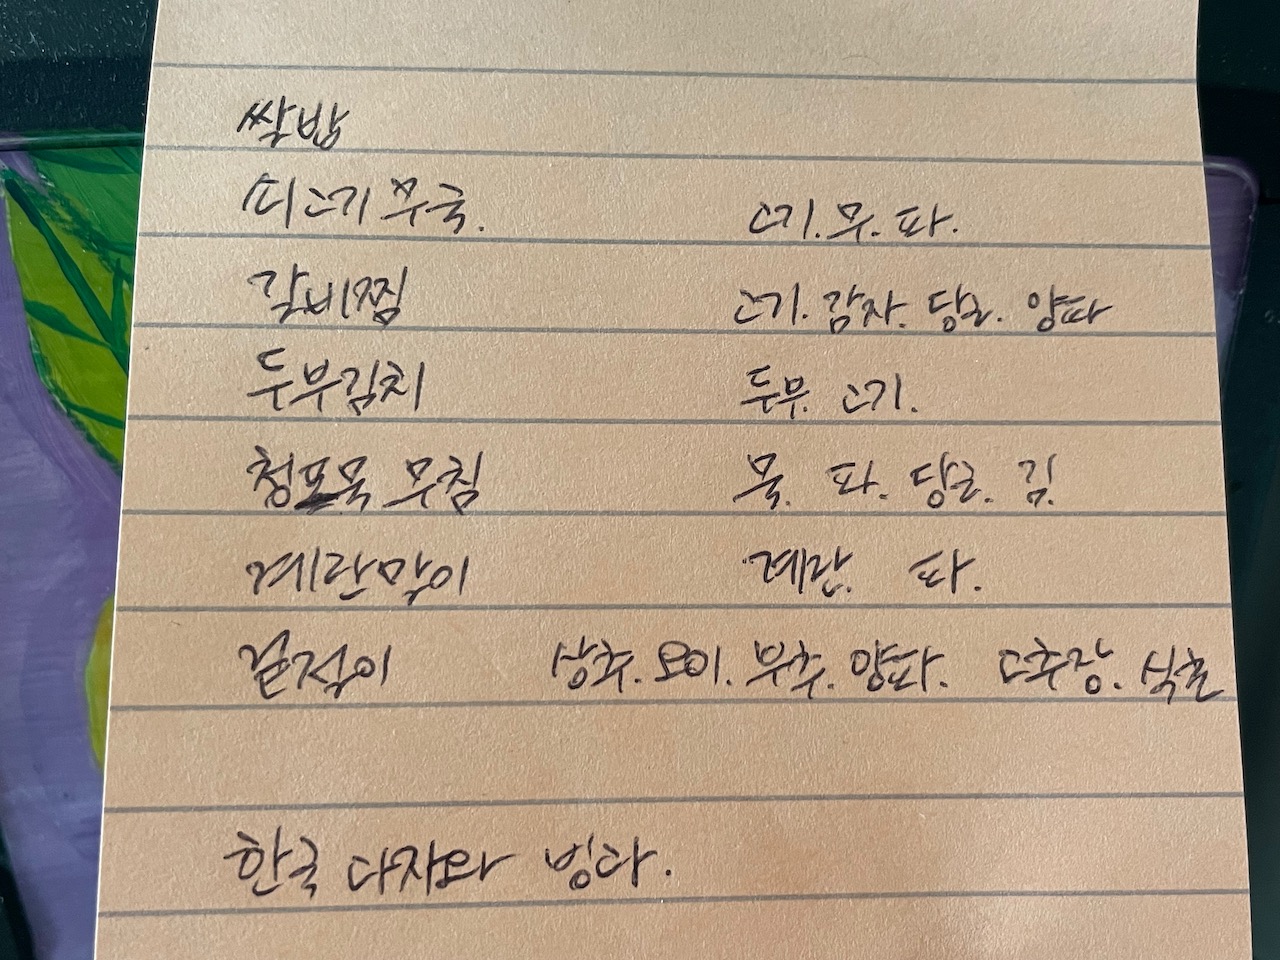 쌀밥
쇠고기 무국. 고기. 무. 파.
갈비찜 고기. 감자. 당근. 양파
두부김치 두부. 고기.
청포묵 무침 묵. 파. 당근. 김.
계란말이 계란. 파.
겉절이 상추. 오이. 부추. 양파. 고추장. 식초
한국 다자와 빙다.